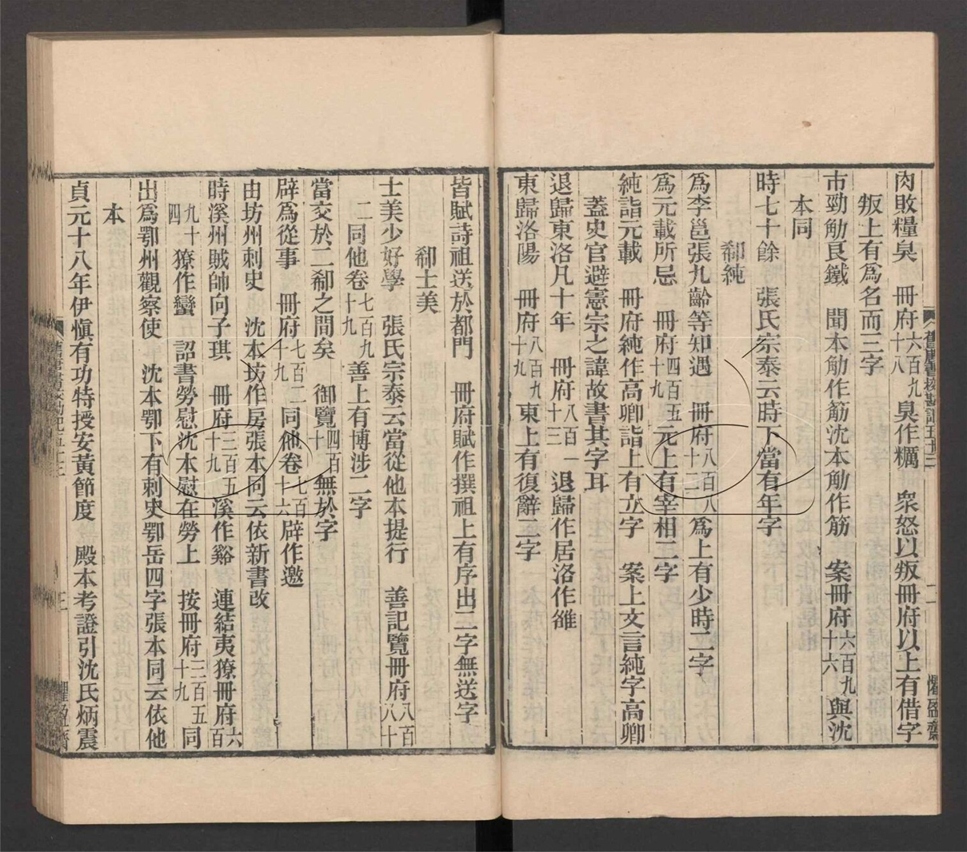 肉敗糧臭　冊府六百九十八臭作糲　衆怒以叛冊府以上有借字
叛上有爲名而三字
市勁觔良鐵　聞本觔作筋沈本觔作筋　案冊府六百九十六與沈
本同
時七十餘　張氏宗泰云時下當有年字
郗純
爲李邕張九齡等知遇　冊府八百八十二爲上有少時二字
爲元載所忌　冊府四百五十九元上有宰相二字
純詣元載　冊府純作高卿詣上有立字　案上文言純字高卿
蓋史官避憲宗之諱故書其字耳
退歸東洛凡十年　冊府八百一十三退歸作居洛作雒
東歸洛陽　冊府八百九十九東上有復辭二字
皆賦詩祖送於都門　冊府賦作撰祖上有序出二字無送字
郗士美
士美少好學　張氏宗泰云當從他本提行　善記覽冊府八百八十
二同他卷七百九十九善上有博涉二字
當交於二郗之間矣　御覽四百十無於字
辟爲從事　冊府七百二十九同他卷七百十六辟作邀
由坊州刺史　沈本坊作房張本同云依新書改
時溪州賊帥向子琪　冊府三百五十九溪作谿　連結夷獠冊府六百
九十四獠作蠻　詔書勞慰沈本慰在勞上　按冊府三百五十九同
出爲鄂州觀察使　沈本鄂下有刺史鄂岳四字張本同云依他
本
貞元十八年伊愼有功特授安黃節度　殿本考證引沈氏炳震